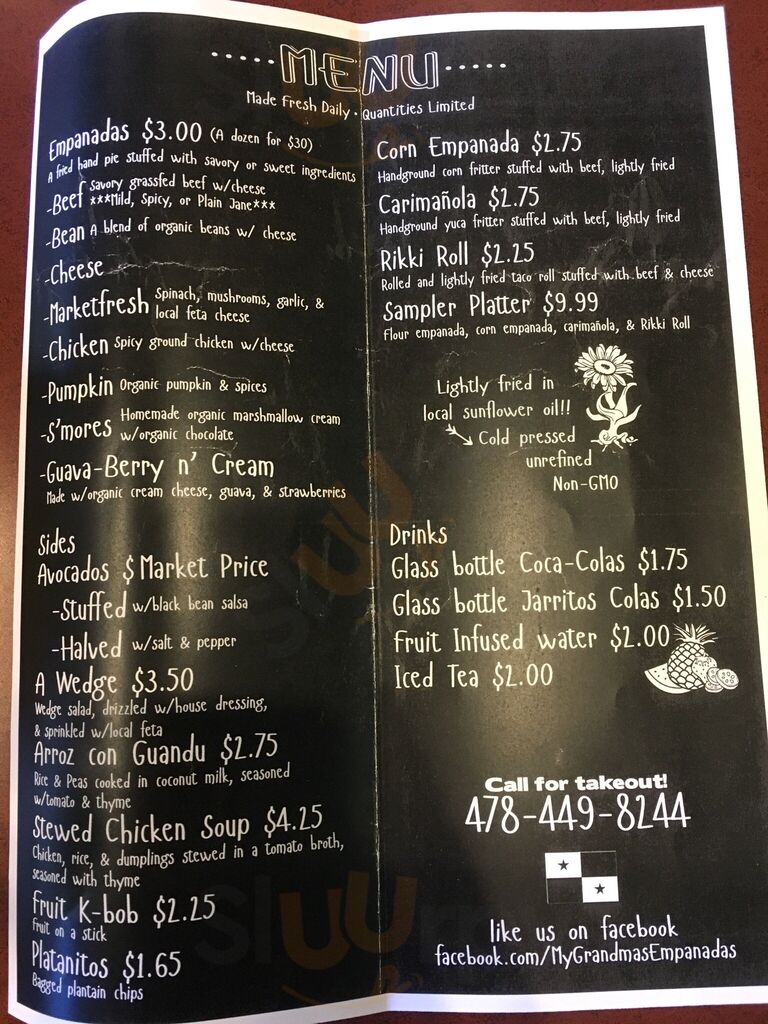 MENU
Made Fresh Daily • Quantities Limited
Empanadas $3.00 (A dozen for $30)
A fried hand pie stuffed with savory or sweet ingredients
-Beef Savory grassfed beef w/cheese
***Mild, Spicy, or Plain Jane***
-Bean A blend of organic beans w/ cheese
-Cheese
-Marketfresh Spinach, mushrooms, garlic, &
local feta cheese
-Chicken Spicy ground chicken w/cheese
-Pumpkin Organic pumpkin & spices
-S'mores Homemade organic marshmallow cream
w/organic chocolate
-Guava-Berry n' Cream
Made w/organic cream cheese, guava, & strawberries
Sides
Avocados $ Market Price
-Stuffed w/black bean salsa
-Halved w/salt & pepper
A Wedge $3.50
Wedge salad, drizzled w/house dressing,
& sprinkled w/local feta
Arroz con Guandu $2.75
Rice & Peas cooked in coconut milk, seasoned
w/tomato & thyme
Stewed Chicken Soup $4.25
Chicken, rice, & dumplings stewed in a tomato broth,
seasoned with thyme
Fruit K-bob $2.25
Fruit on a stick
Platanitos $1.65
Bagged plantain chips
Corn Empanada $2.75
Handground corn fritter stuffed with beef, lightly fried
Carimañola $2.75
Handground yuca fritter stuffed with beef, lightly fried
Rikki Roll $2.25
Rolled and lightly fried taco roll stuffed with beef & cheese
Sampler Platter $9.99
Flour empanada, corn empanada, carimañola, & Rikki Roll
Lightly fried in
local sunflower oil!!
Cold pressed
unrefined
Non-GMO
Drinks
Glass bottle Coca-Colas $1.75
Glass bottle Jarritos Colas $1.50
Fruit Infused water $2.00
Iced Tea $2.00
Call for takeout!
478-449-8244
like us on facebook
facebook.com/MyGrandmasEmpanadas